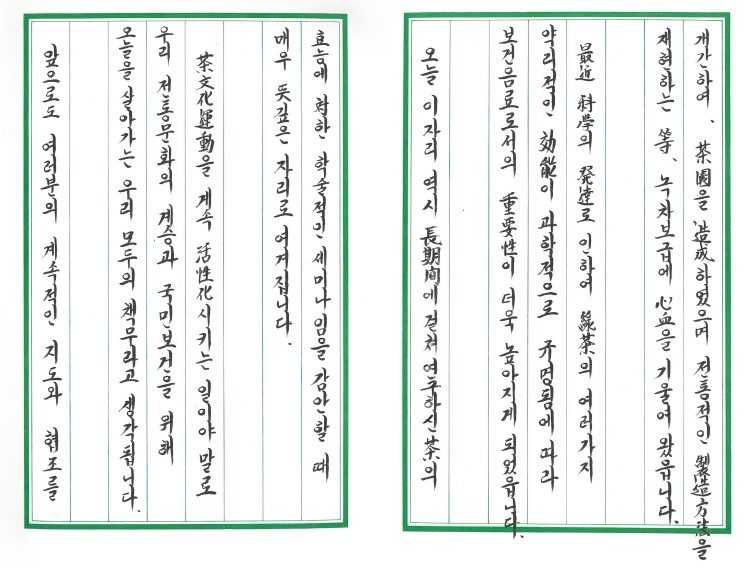 개간하여、茶園을 造成하였으며 전통적인 製造方法을
재현하는 等、녹차보급에 心血을 기울여 왔읍니다.
最近 科學의 発達로 인하여 綠茶의 여러가지
약리적인 効能이 과학적으로 규명됨에 따라
보건음료로서의 重要性이 더욱 높아지게 되었읍니다.
오늘 이자리 역시 長期間에 걸쳐 연구하신 茶의
효능에 관한 학술적인 세미나임을 감안할 때
매우 뜻깊은 자리로 여겨집니다.
茶文化運動을 계속 活性化시키는 일이야 말로
우리 전통문화의 계승과 국민보건을 위해
오늘을 살아가는 우리 모두의 책무라고 생각됩니다.
앞으로도 여러분의 계속적인 지도와 협조를